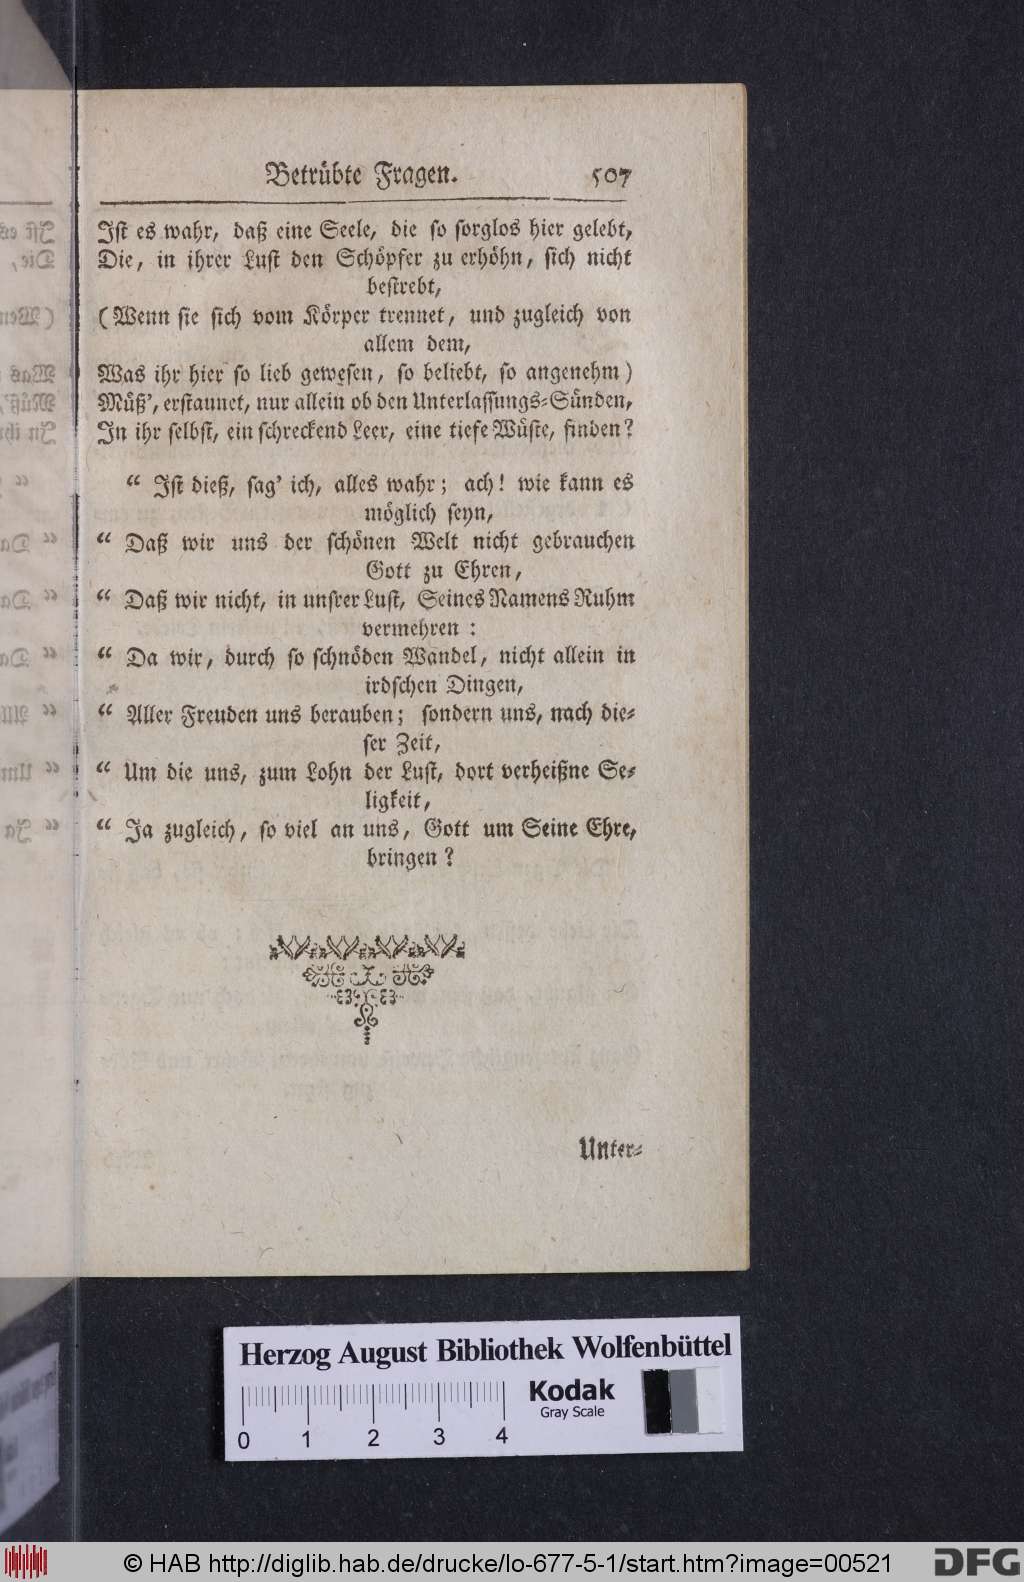 Betrübte Fragen. 507
Ist es wahr, daß eine Seele, die so sorglos hier gelebt,
Die, in ihrer Lust den Schöpfer zu erhöhn, sich nicht
bestrebt,
(Wenn sie sich vom Körper trennet, und zugleich von
allem dem,
Was ihr hier so lieb gewesen, so beliebt, so angenehm)
Müß', erstaunet, nur allein ob den Unterlassungs-Sünden,
In ihr selbst, ein schreckend Leer, eine tiefe Wüste, finden?
“ Ist dieß, sag' ich, alles wahr; ach! wie kann es
möglich seyn,
“ Daß wir uns der schönen Welt nicht gebrauchen
Gott zu Ehren,
“ Daß wir nicht, in unsrer Lust, Seines Namens Ruhm
vermehren:
“ Da wir, durch so schnöden Wandel, nicht allein in
irdschen Dingen,
“ Aller Freuden uns berauben; sondern uns, nach die-
ser Zeit,
“ Um die uns, zum Lohn der Lust, dort verheißne Se-
ligkeit,
“ Ja zugleich, so viel an uns, Gott um Seine Ehre,
bringen?
Unter-
Herzog August Bibliothek Wolfenbüttel
Kodak
Gray Scale
0 1 2 3 4
© HAB http://diglib.hab.de/drucke/lo-677-5-1/start.htm?image=00521
DFG